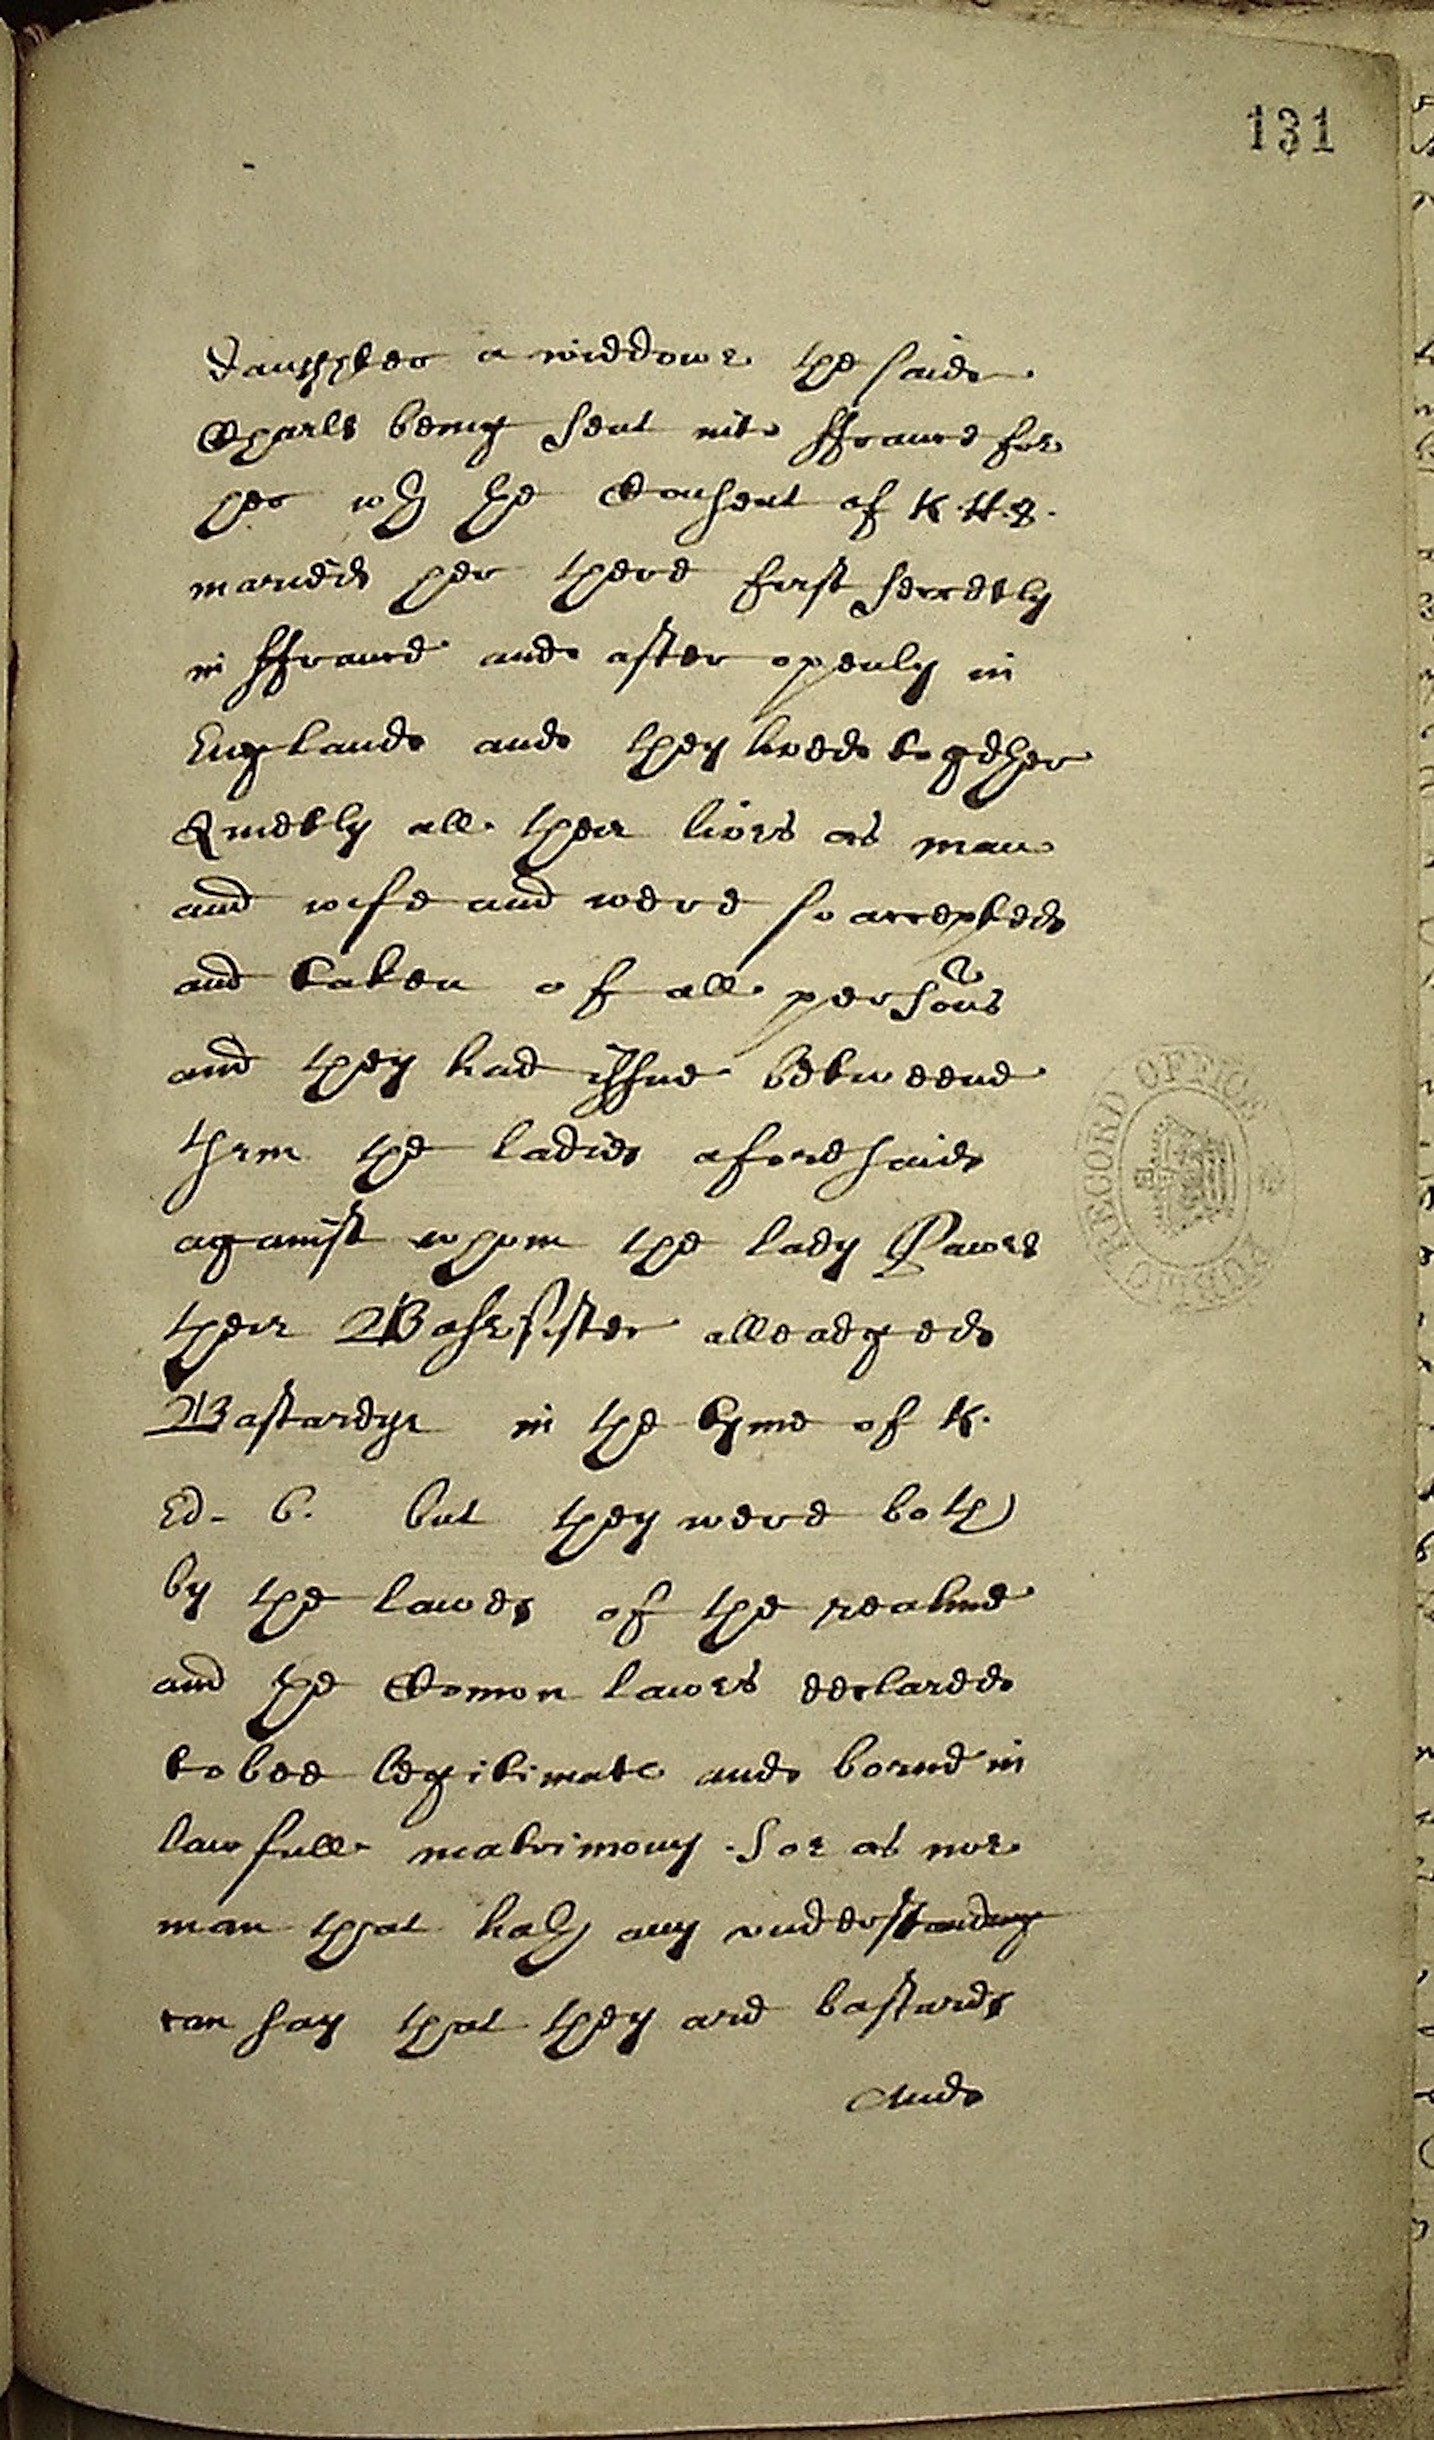 131
daughter a widdowe the said
Charls being sent into ffrance for
her wth the Consent of K. H. 8.
maried her there first secretly
in ffrance and after openly in
England and they lived together
Quietly all their lives as man
and wife and were so accepted
and taken of all persons
and they had issue betweene
them the ladies aforesaid
against whom the lady Pawes
their Base sister alleadged
Bastardye in the tyme of K.
Ed. 6. but they were both
by the lawes of the realme
and the Comon lawes declared
to bee legitimate and borne in
lawfull matrimony. So as noe
man that hath any understanding
can say that they are bastards
And
PUBLIC RECORD OFFICE